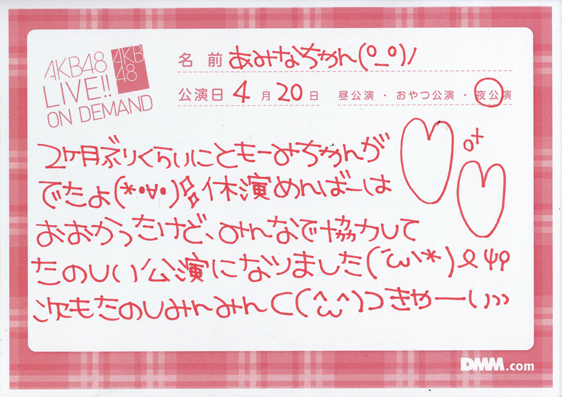 AKB48
LIVE!!
ON DEMAND
AKB
48
名 前 あみなちゃん(o_o)ノ
公演日 4 月 20 日 昼公演・おやつ公演・夜公演
2ヶ月ぶりくらいにともーみちゃんが
でたよ(*・∀・)休演めんばーは
おおかったけど、みんなで協力して
たのしい公演になりました(´ω`*)
次もたのしみんみん⊂(^ω^)⊃きやーいっ
DMM.com